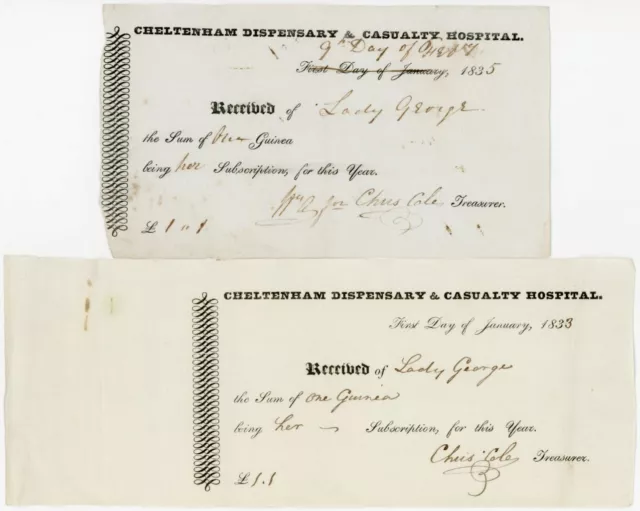 CHELTENHAM DISPENSARY & CASUALTY HOSPITAL.
9th Day of April
First Day of January, 1835
Received of Lady George
the Sum of One Guinea
being her Subscription, for this Year.
for Chris Cole Treasurer.
£ 1 " 1
CHELTENHAM DISPENSARY & CASUALTY HOSPITAL.
First Day of January, 1833
Received of Lady George
the Sum of One Guinea
being her Subscription, for this Year.
Chris Cole Treasurer.
£ 1.1